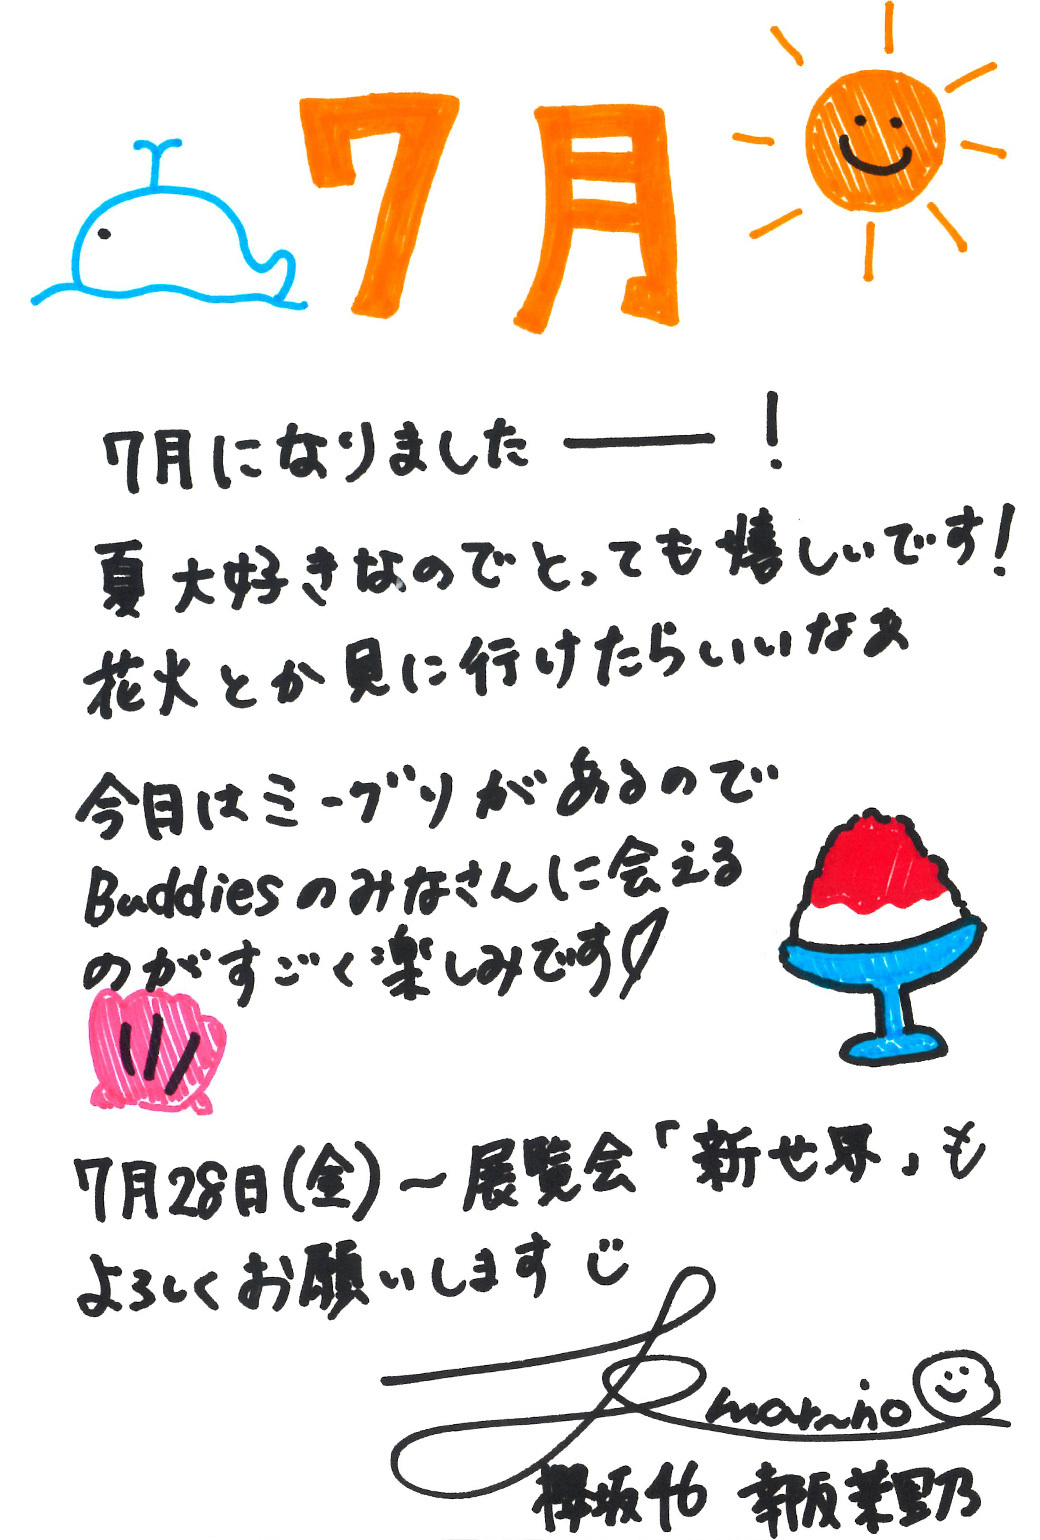 7月
7月になりましたー！
夏大好きなのでとっても嬉しいです！
花火とか見に行けたらいいなぁ
今日はミーグリがあるので
Buddiesのみなさんに会える
のがすごく楽しみです♡
7月28日(金)〜展覧会「新世界」も
よろしくお願いします
marino
櫻坂46 幸阪茉里乃